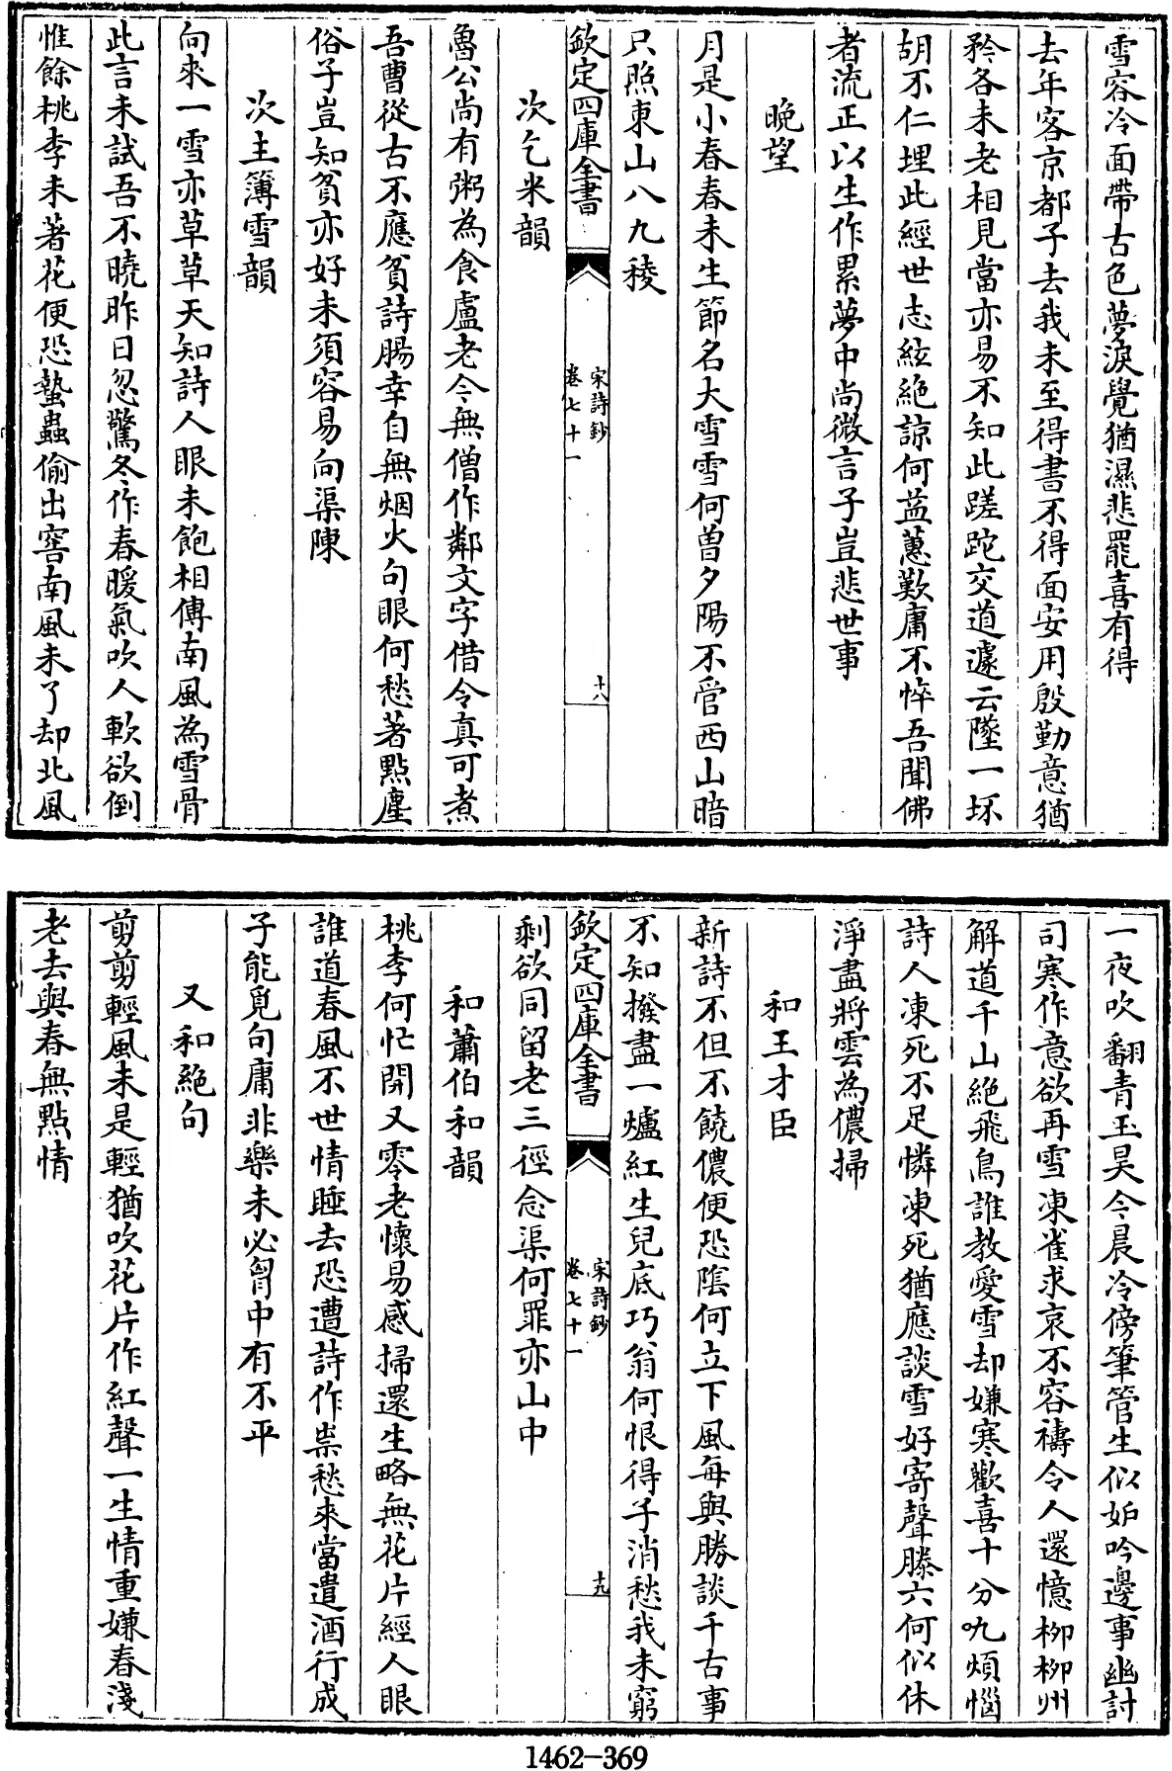 雪容冷面帶古色夢淚覺猶濕悲罷喜有得
去年客京都子去我未至得書不得面安用殷勤意猶
矜各未老相見當亦易不知此蹉跎交道遽云墜一坏
胡不仁埋此經世志絃絶諒何益蕙歎庸不悴吾聞佛
者流正以生作累夢中尚微言子豈悲世事
晚望
月是小春春未生節名大雪雪何曽夕陽不管西山暗
只照東山八九稜
欽定四庫全書
宋詩鈔
卷七十一
十八
次乞米韻
魯公尚有粥為食盧老今無僧作鄰文字借令真可煮
吾曹從古不應貧詩腸幸自無烟火句眼何愁著點塵
俗子豈知貧亦好未須容易向渠陳
次主簿雪韻
向來一雪亦草草天知詩人眼未飽相傳南風為雪骨
此言未試吾不曉昨日忽驚冬作春暖氣吹人軟欲倒
惟餘桃李未著花便恐蟄蟲偷出窖南風未了却北風
一夜吹翻青玉昊今晨冷傍筆管生似妬吟邊事幽討
司寒作意欲再雪凍雀求哀不容禱令人還憶柳柳州
解道千山絶飛鳥誰教愛雪却嫌寒歡喜十分九煩惱
詩人凍死不足憐凍死猶應談雪好寄聲滕六何似休
淨盡將雲為儂掃
和王才臣
新詩不但不饒儂便恐陰何立下風每與勝談千古事
不知撥盡一爐紅生兒底巧翁何恨得子消愁我未窮
欽定四庫全書
宋詩鈔
卷七十一
十九
剩欲同留老三徑念渠何罪亦山中
和蕭伯和韻
桃李何忙開又零老懷易感掃還生略無花片經人眼
誰道春風不世情睡去恐遭詩作祟愁來當遣酒行成
子能覓句庸非樂未必胷中有不平
又和絶句
剪剪輕風未是輕猶吹花片作紅聲一生情重嫌春淺
老去與春無點情
1462-369